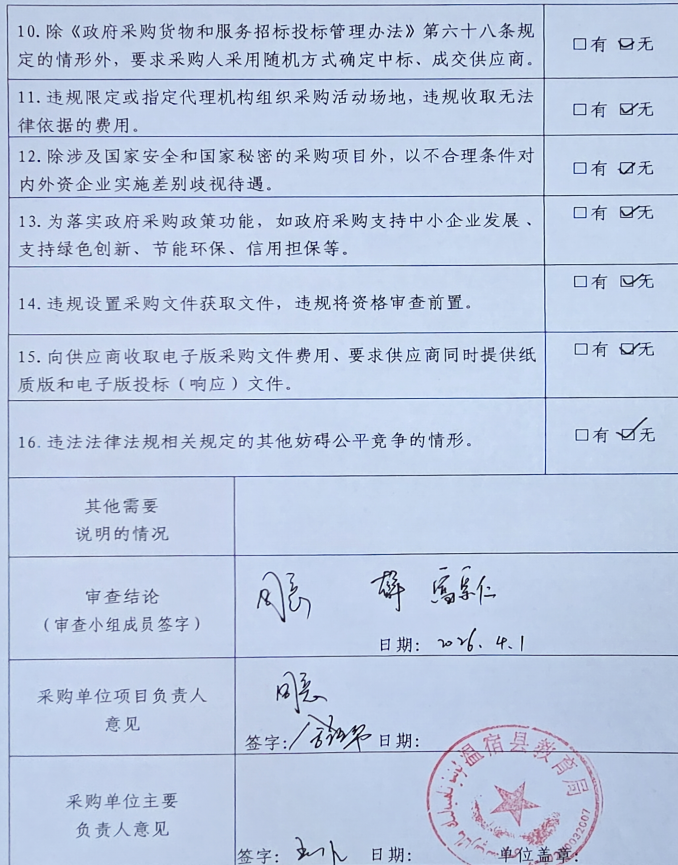 10. 除《政府采购货物和服务招标投标管理办法》第六十八条规
定的情形外，要求采购人采用随机方式确定中标、成交供应商。
□有 ☑无
11. 违规限定或指定代理机构组织采购活动场地，违规收取无法
律依据的费用。
□有 ☑无
12. 除涉及国家安全和国家秘密的采购项目外，以不合理条件对
内外资企业实施差别歧视待遇。
□有 ☑无
13. 为落实政府采购政策功能，如政府采购支持中小企业发展、
支持绿色创新、节能环保、信用担保等。
□有 ☑无
14. 违规设置采购文件获取文件，违规将资格审查前置。
□有 ☑无
15. 向供应商收取电子版采购文件费用、要求供应商同时提供纸
质版和电子版投标（响应）文件。
□有 ☑无
16. 违法法律法规相关规定的其他妨碍公平竞争的情形。
□有 ☑无
其他需要
说明的情况
审查结论
（审查小组成员签字）
日期：2026.4.1
采购单位项目负责人
意见
同意
签字： 日期：
采购单位主要
负责人意见
温宿县教育局
签字： 日期： 单位盖章：